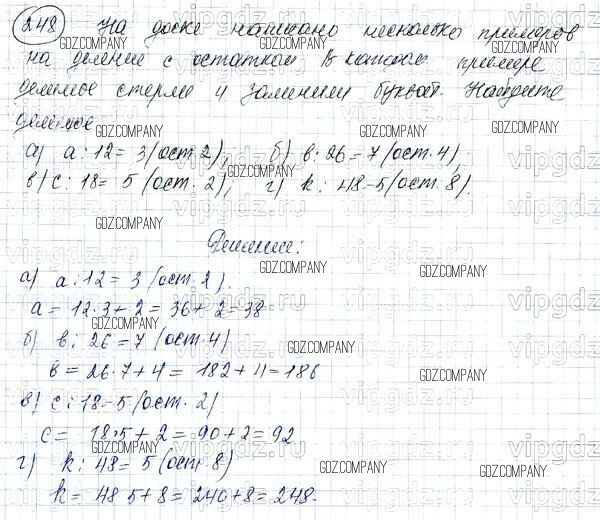 248 На доске написано несколько примеров
на деление с остатком. В каждом примере
делимое стерли и заменили буквой. Найдите
делимое
а) a : 12 = 3 (ост. 2), б) в : 26 = 7 (ост. 4),
в) c : 18 = 5 (ост. 2), г) k : 48 - 5 (ост. 8).
Решение:
а) a : 12 = 3 (ост. 2).
a = 12·3 + 2 = 36 + 2 = 38
б) в : 26 = 7 (ост. 4)
в = 26·7 + 4 = 182 + 4 = 186
в) c : 18 - 5 (ост. 2)
c = 18·5 + 2 = 90 + 2 = 92
г) k : 48 = 5 (ост. 8)
k = 48 5 + 8 = 240 + 8 = 248.
GDZ.COMPANY
vipgdz.ru